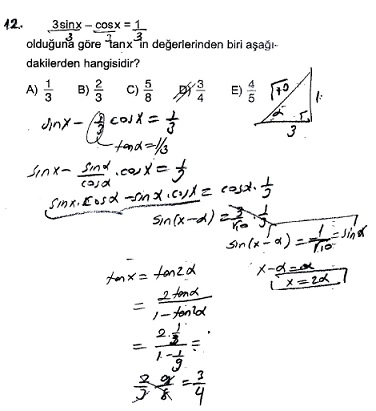 12. 3sinx – cosx = 1
3 3 3
olduğuna göre tanx in değerlerinden biri aşağı-
dakilerden hangisidir?
A) 1/3 B) 2/3 C) 5/8 D) 3/4 E) 4/5
√10 1 α 3
sinx – 1/3 cosx = 1/3
tanα = 1/3
sinx – sinα/cosα . cosx = 1/3
sinx.cosα – sinα.cosx = cosα . 1/3
sin(x-α) = 3/√10 . 1/3
sin(x-α) = 1/√10 = sinα
x-α = α
x = 2α
tanx = tan2α
= 2tanα / 1-tan²α
= 2.1/3 / 1-1/9 =
2/3 . 9/8 = 3/4